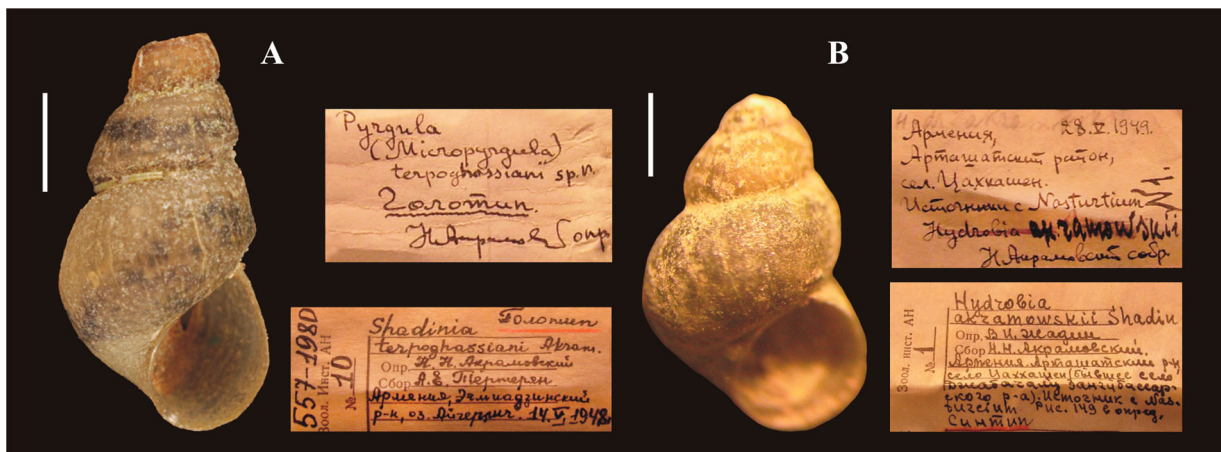 A
Pyrgula
(Micropyrgula)
terpoghassiani sp. n.
Голотип.
опр.
557-198D
Зоол. Инст. АН
№ 10
Голотип
Shadinia
terpoghassiani Akram.
Опр. Н. Н. Акрамовский
Сбор. А. Е. Тертерян
Армения, Эчмиадзинский
р-н, оз. Айгерлич. 14.V.1948
B
28.V.1949.
Армения,
Арташатский район,
сел. Цахкашен.
Источники с Nasturtium
Hydrobia akramowskii
Н. Акрамовский собр.
Зоол. инст. АН
№ 1
Hydrobia
akramowskii Shadin
Опр. В. И. Жадин
Сбор Н. Н. Акрамовский.
Армения, Арташатский р-н,
село Цахкашен (бывшее село
ского р-а). Источник с Nas-
Рис. 149 в опред.
Синтип